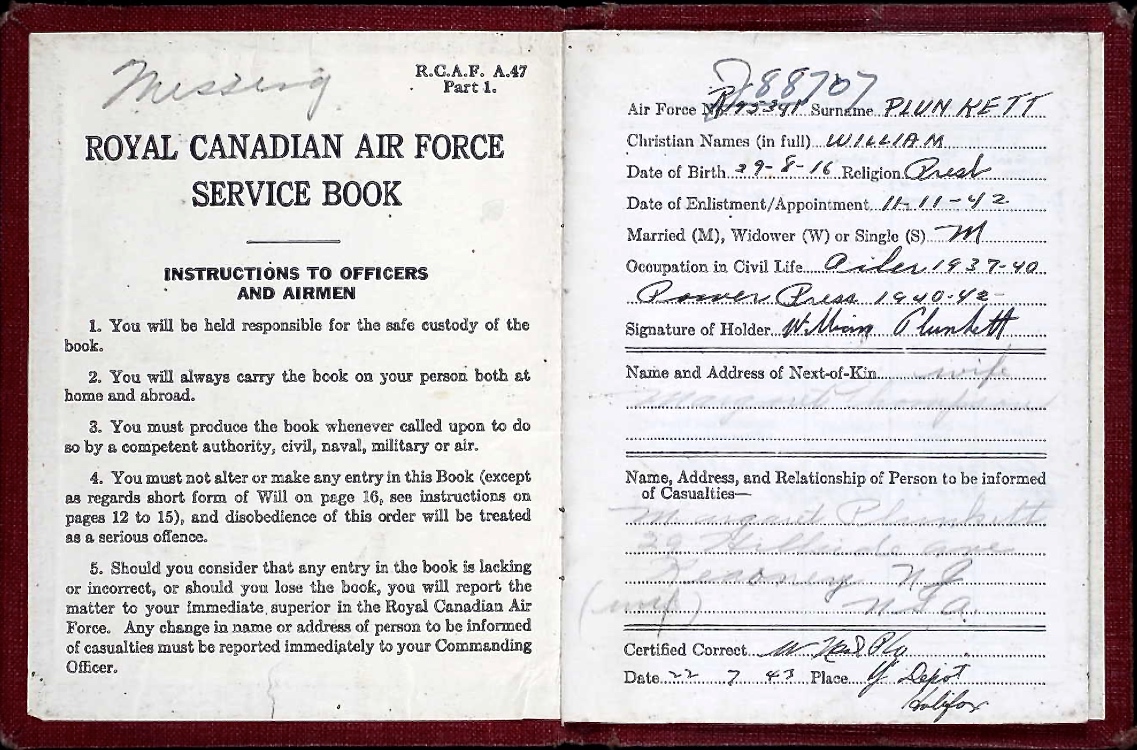 Missing
R.C.A.F. A.47
Part 1.
ROYAL CANADIAN AIR FORCE
SERVICE BOOK
INSTRUCTIONS TO OFFICERS
AND AIRMEN
1. You will be held responsible for the safe custody of the
book.
2. You will always carry the book on your person both at
home and abroad.
3. You must produce the book whenever called upon to do
so by a competent authority, civil, naval, military or air.
4. You must not alter or make any entry in this Book (except
as regards short form of Will on page 16, see instructions on
pages 12 to 15), and disobedience of this order will be treated
as a serious offence.
5. Should you consider that any entry in the book is lacking
or incorrect, or should you lose the book, you will report the
matter to your immediate superior in the Royal Canadian Air
Force. Any change in name or address of person to be informed
of casualties must be reported immediately to your Commanding
Officer.
J88707
Air Force No. Surname PLUNKETT
Christian Names (in full) WILLIAM
Date of Birth 29-8-16 Religion Presb
Date of Enlistment/Appointment 11-11-42
Married (M), Widower (W) or Single (S) M
Occupation in Civil Life Oiler 1937-40
Power Press 1940-42
Signature of Holder William Plunkett
Name and Address of Next-of-Kin wife
Margaret Thompson
Name, Address, and Relationship of Person to be informed
of Casualties—
Margaret Plunkett
Ave
Kearney NJ
(wife) USA
Certified Correct
Date 22 7 43 Place Y Depot
Halifax